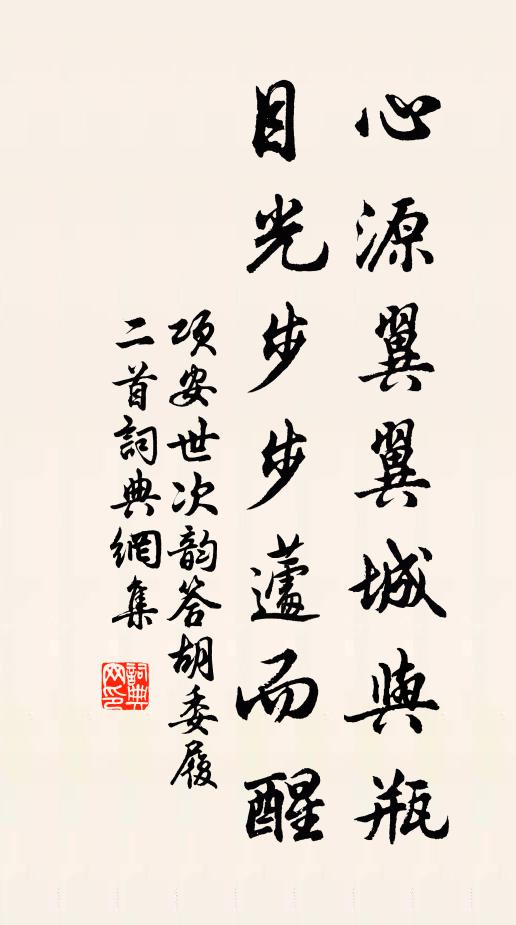 心源翼翼城與瓶
目光步步蘧而醒
項安世次韵答胡委履
二首詞典網集
詞典
网印